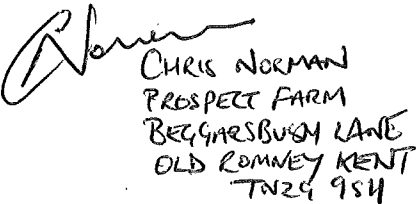 CHRIS NORMAN
PROSPECT FARM
BEGGARSBUSH LANE
OLD ROMNEY KENT
TN29 9SY